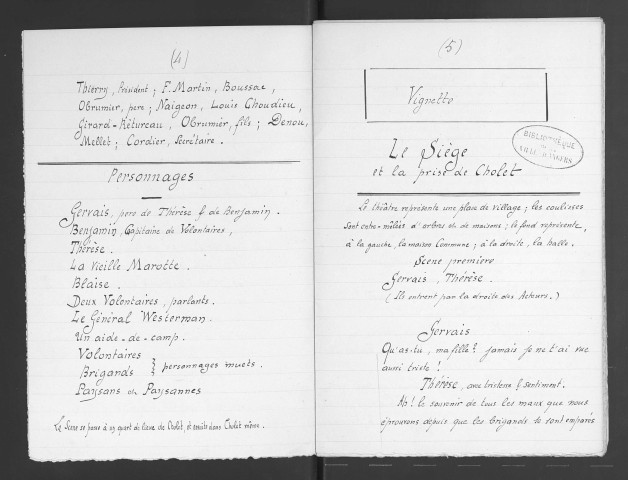 (4)
Thierry, Président ; F. Martin, Boussac,
Obrumier, pere ; Naigeon, Louis Choudieu,
Girard-Rétureau, Obrumier, fils ; Denou,
Mellet ; Cordier, Secrétaire.
Personnages
Gervais, pere de Thérèse & de Benjamin.
Benjamin, Capitaine de Volontaires,
Thérèse.
La vieille Marotte.
Blaise.
Deux Volontaires, parlants.
Le Général Westerman.
Un aide-de-camp.
Volontaires
Brigands } personnages muets.
Paysans et Paysannes
La Scène se passe à un quart de lieue de Cholet, et ensuite dans Cholet même.
(5)
Vignette
BIBLIOTHÈQUE
VILLE D'ANGERS
Le Siège
et la prise de Cholet
Le théâtre représente une place de village ; les coulisses
sont entre-mêlées d'arbres et de maisons ; le fond représente,
à la gauche, la maison Commune ; à la droite, la halle.
Scène première
Gervais, Thérèse.
(Ils entrent par la droite des Acteurs.)
Gervais
Qu'as-tu, ma fille ? jamais je ne t'ai vue
aussi triste !
Thérèse, avec tristesse & sentiment.
Ah ! le souvenir de tous les maux que nous
éprouvons depuis que les brigands se sont emparés